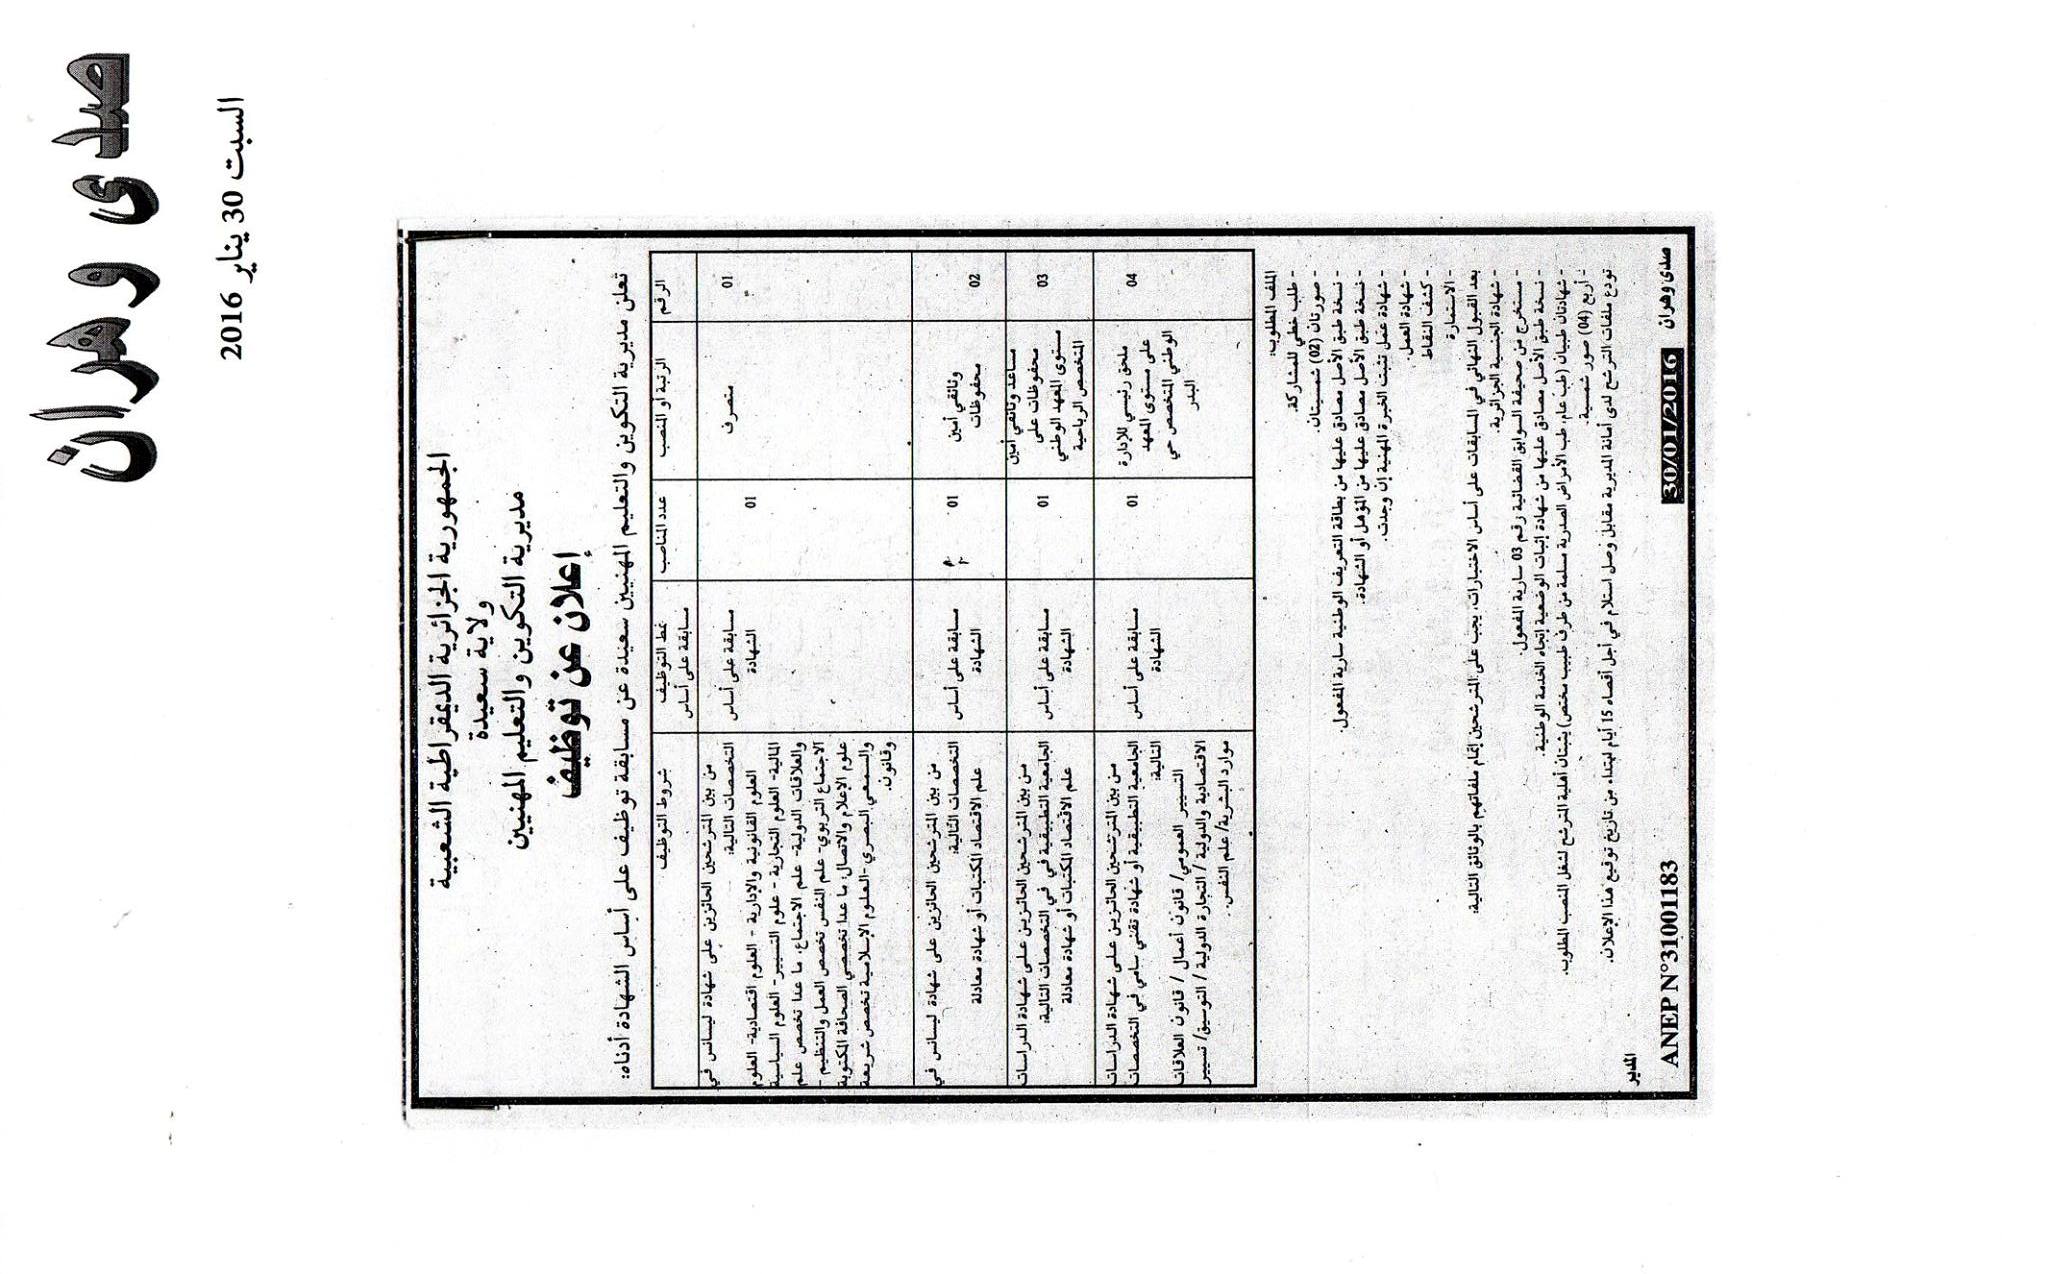 صدى وهران
السبت 30 يناير 2016
الجمهورية الجزائرية الديمقراطية الشعبية
ولاية سعيدة
مديرية التكوين والتعليم المهنيين
إعلان عن توظيف
تعلن مديرية التكوين والتعليم المهنيين سعيدة عن مسابقة توظيف على أساس الشهادة أدناه:
الرقم
الرتبة أو المنصب
عدد المناصب
نمط التوظيف
مسابقة على أساس
شروط التوظيف
01
متصرف
01
مسابقة على أساس
الشهادة
من بين المترشحين الحائزين على شهادة ليسانس في
التخصصات التالية:
العلوم القانونية والإدارية - العلوم اقتصادية- العلوم
المالية- العلوم التجارية - علوم التسيير- العلوم السياسية
والعلاقات الدولية- علم الاجتماع، ما عدا تخصص علم
الاجتماع التربوي- علم النفس تخصص العمل والتنظيم -
علوم الإعلام والاتصال، ما عدا تخصصي الصحافة المكتوبة
والسمعي البصري -العلوم الإسلامية تخصص شريعة
وقانون.
02
وثائقي أمين
محفوظات
01
مسابقة على أساس
الشهادة
من بين المترشحين الحائزين على شهادة ليسانس في
التخصصات التالية:
علم الاقتصاد المكتبات أو شهادة معادلة
03
مساعد وثائقي أمين
محفوظات على
مستوى المعهد الوطني
المتخصص الرباحية
01
مسابقة على أساس
الشهادة
من بين المترشحين الحائزين على شهادة الدراسات
الجامعية التطبيقية في في التخصصات التالية:
علم الاقتصاد المكتبات أو شهادة معادلة
04
ملحق رئيسي للإدارة
على مستوى المعهد
الوطني المتخصص حي
البدر
01
مسابقة على أساس
الشهادة
من بين المترشحين الحائزين على شهادة الدراسات
الجامعية التطبيقية أو شهادة تقني سامي في التخصصات
التالية:
التسيير العمومي/ قانون أعمال / قانون العلاقات
الاقتصادية والدولية / التجارة الدولية / التوسيق/ تسيير
موارد البشرية/ علم النفس.
الملف المطلوب:
- طلب خطي للمشاركة.
- صورتان (02) شمسيتان.
- نسخة طبق الأصل مصادق عليها من بطاقة التعريف الوطنية سارية المفعول.
- نسخة طبق الأصل مصادق عليها من المؤهل أو الشهادة.
- شهادة عمل تثبت الخبرة المهنية إن وجدت.
- شهادة العمل.
- كشف النقاط
- الاستمارة
بعد القبول النهائي في المسابقات على أساس الاختبارات، يجب على المترشحين إتمام ملفاتهم بالوثائق التالية:
- شهادة الجنسية الجزائرية
- مستخرج من صحيفة السوابق القضائية رقم 03 سارية المفعول.
- نسخة طبق الأصل مصادق عليها من شهادة إثبات الوضعية إتجاه الخدمة الوطنية.
- شهادتان طبيتان (طب عام، طب الأمراض الصدرية مسلمة من طرف طبيب مختص) يثبتان أهلية المترشح لشغل المنصب المطلوب.
- أربع (04) صور شمسية.
تودع ملفات الترشح لدى أمانة المديرية مقابل وصل استلام في أجل أقصاه 15 أيام إبتداء من تاريخ توقيع هذا الإعلان.
المدير
صدى وهران 30/01/2016 ANEP N°31001183